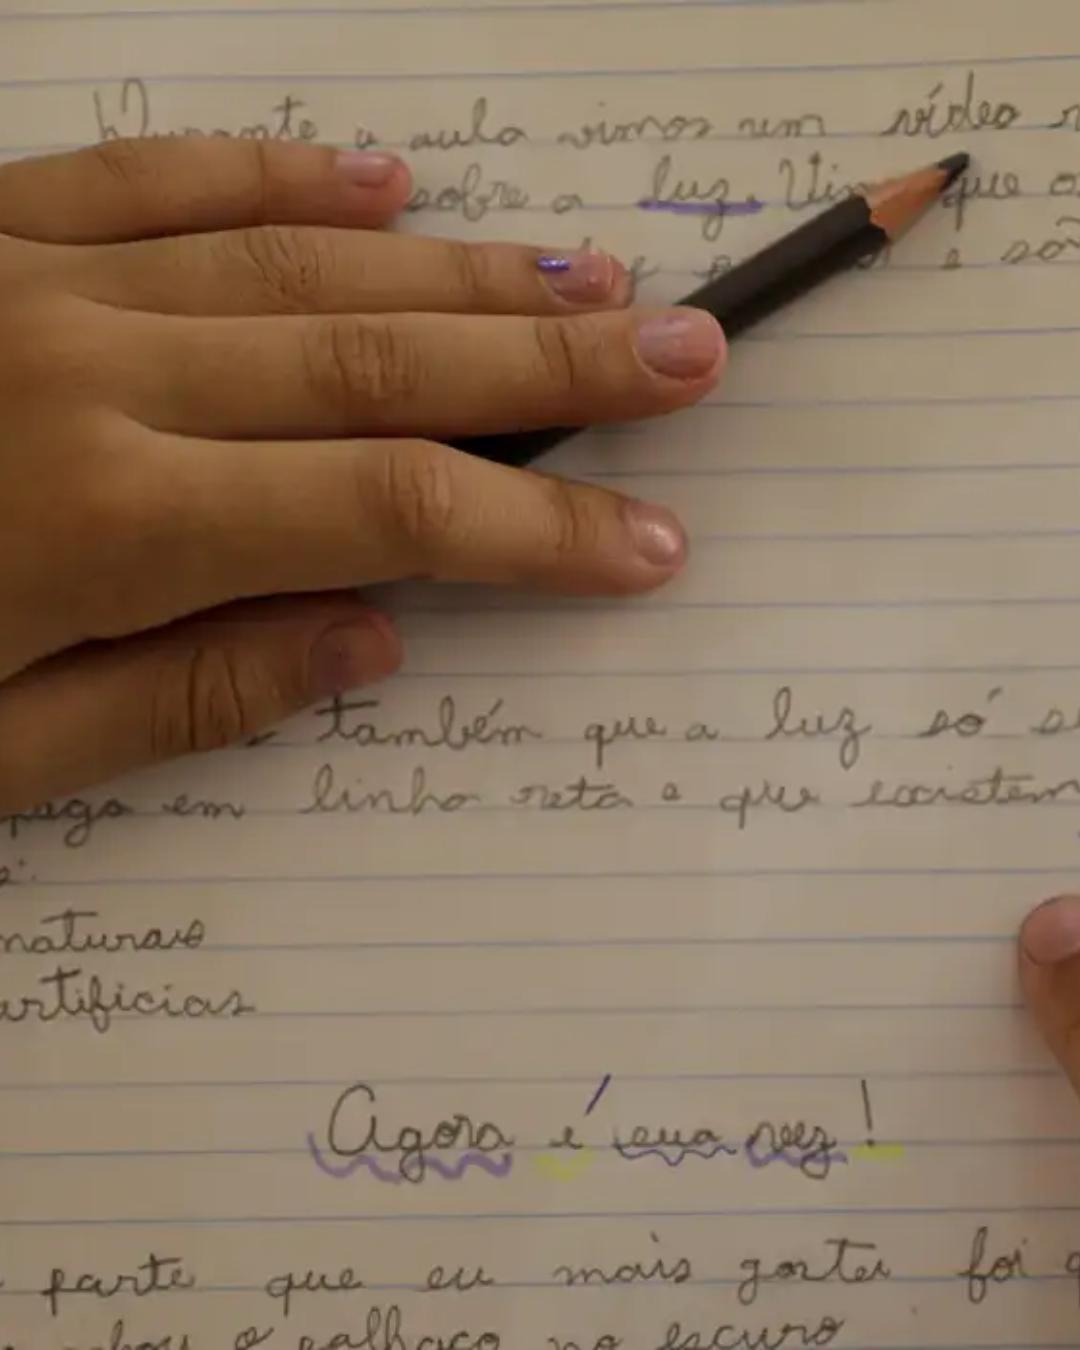 Durante a aula vimos um vídeo
sobre a luz. que
e são
também que a luz só
em linha reta e que existem
naturais
artificias
Agora é sua vez!
parte que eu mais gostei foi
o palhaço no escuro